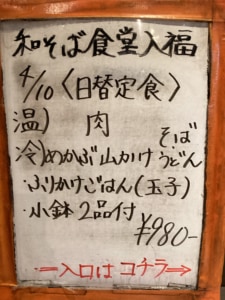 和そば食堂入福
4/10〈日替定食〉
温) 肉
冷)めかぶ山かけ そば うどん
ふりかけごはん(玉子)
小鉢2品付
¥980-
入口はコチラ→